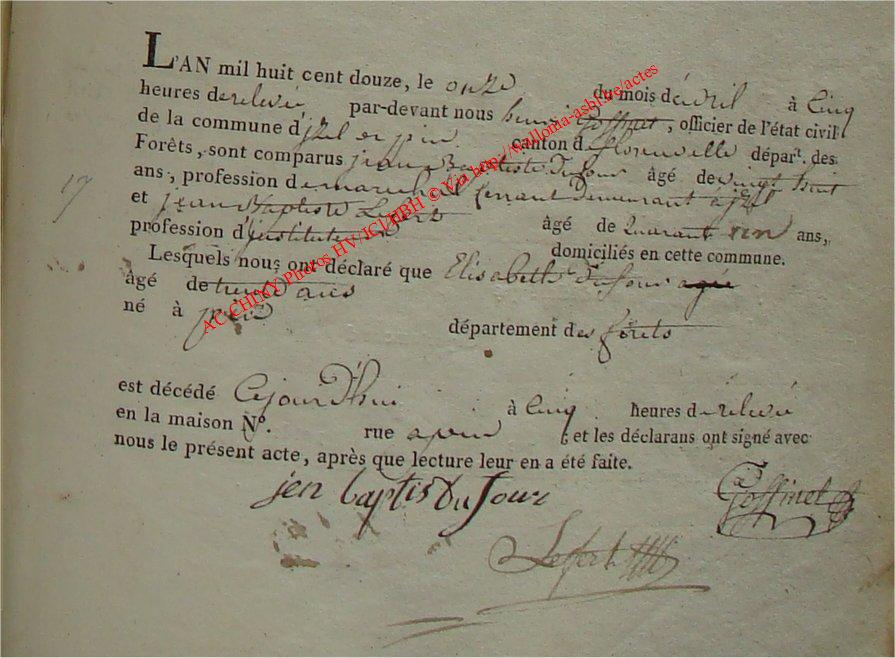 L'AN mil huit cent douze, le onze du mois d'avril à cinq
heures de relevée par-devant nous henri Goffinet, officier de l'état civil
de la commune d'izel et pin canton de florenville départ. des
Forêts, sont comparus jean Baptiste Dufour âgé de vingt huit
ans, profession de marechal ferrant demeurant à
et jean Baptiste âgé de quarant ans,
profession d'instituteur domiciliés en cette commune.
Lesquels nous ont déclaré que Elisabeth Dufour agée
âgé de trente ans
né à pin département des forêts
est décédé cejourd'hui à cinq heures de relevée
en la maison N°. rue a pin, et les déclarans ont signé avec
nous le présent acte, après que lecture leur en a été faite.
jen baptis Dufour Goffinet
17
AC CHINY Photos HV/JCJ/HBH © Via http://wallonia-asbl.be/actes